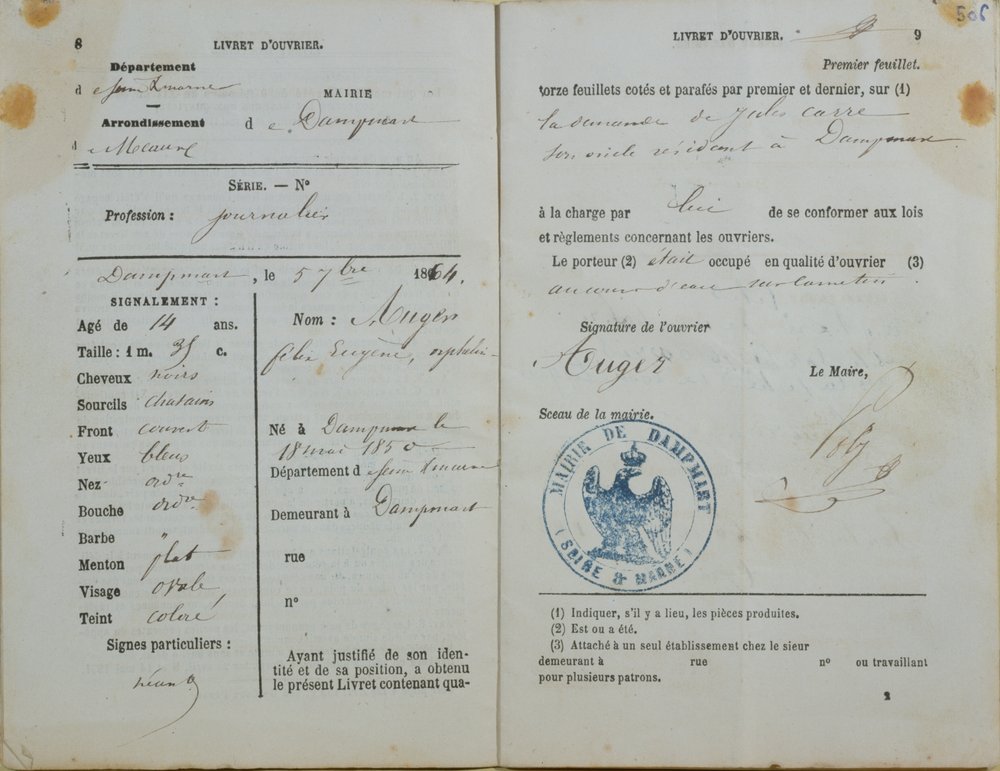 8
LIVRET D'OUVRIER.
Département
d e Seine & marne
Arrondissement
d e Meaux
MAIRIE
d e Dampmart
SÉRIE. — N°
Profession : journalier
Dampmart, le 5 7bre 1864.
SIGNALEMENT :
Agé de 14 ans.
Taille : 1 m. 35 c.
Cheveux noirs
Sourcils chatains
Front couvert
Yeux bleus
Nez ordre
Bouche ordre
Barbe "
Menton plat
Visage ovale
Teint coloré
Signes particuliers :
néant
Nom : Auger
félix Eugène, orphelin
Né à Dampmart le
18 mai 1850
Département d e Seine & marne
Demeurant à Dampmart
rue
n°
Ayant justifié de son iden-
tité et de sa position, a obtenu
le présent Livret contenant qua-
506
LIVRET D'OUVRIER.
9
Premier feuillet.
torze feuillets cotés et parafés par premier et dernier, sur (1)
la demande de Jules Carre
son oncle résidant à Dampmart
à la charge par lui de se conformer aux lois
et règlements concernant les ouvriers.
Le porteur (2) était occupé en qualité d'ouvrier (3)
au cours d'eau
Signature de l'ouvrier
Auger
Le Maire,
Sceau de la mairie.
MAIRIE DE DAMPMART
(SEINE & MARNE)
(1) Indiquer, s'il y a lieu, les pièces produites.
(2) Est ou a été.
(3) Attaché à un seul établissement chez le sieur
demeurant à rue n° ou travaillant
pour plusieurs patrons.
2